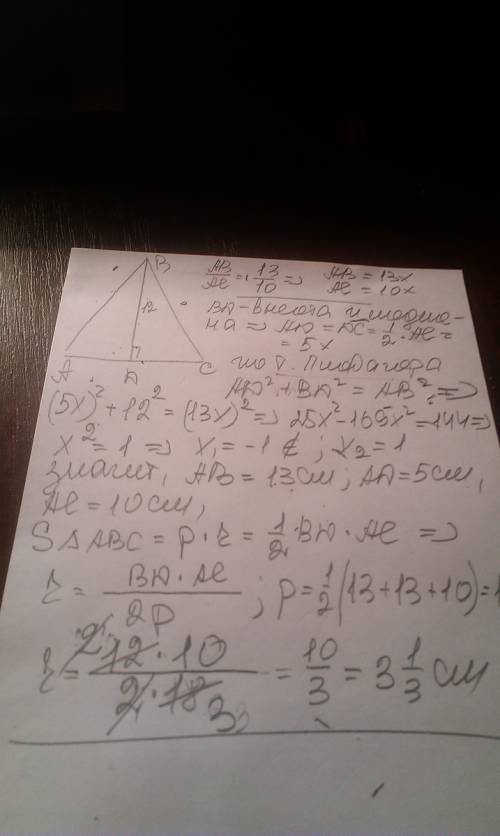 B
12
A
Д
C
AB/AC = 13/10 => AB = 13x
AC = 10x
ВД-высота и медиа-
на => AД = ДC = 1/2 · AC =
= 5x
по т. Пифагора
AД² + BД² = AB² =>
(5x)² + 12² = (13x)² => 25x² - 169x² = -144 =>
x² = 1 => x₁ = -1 ∉ ; x₂ = 1
значит, AB = 13 см; AД = 5 см,
AC = 10 см,
S△ABC = p · r = 1/2 BД · AC =>
r = BД · AC / 2p ; p = 1/2 (13 + 13 + 10) = 1
r = 12 · 10 / 2 · 18 = 10/3 = 3 1/3 см